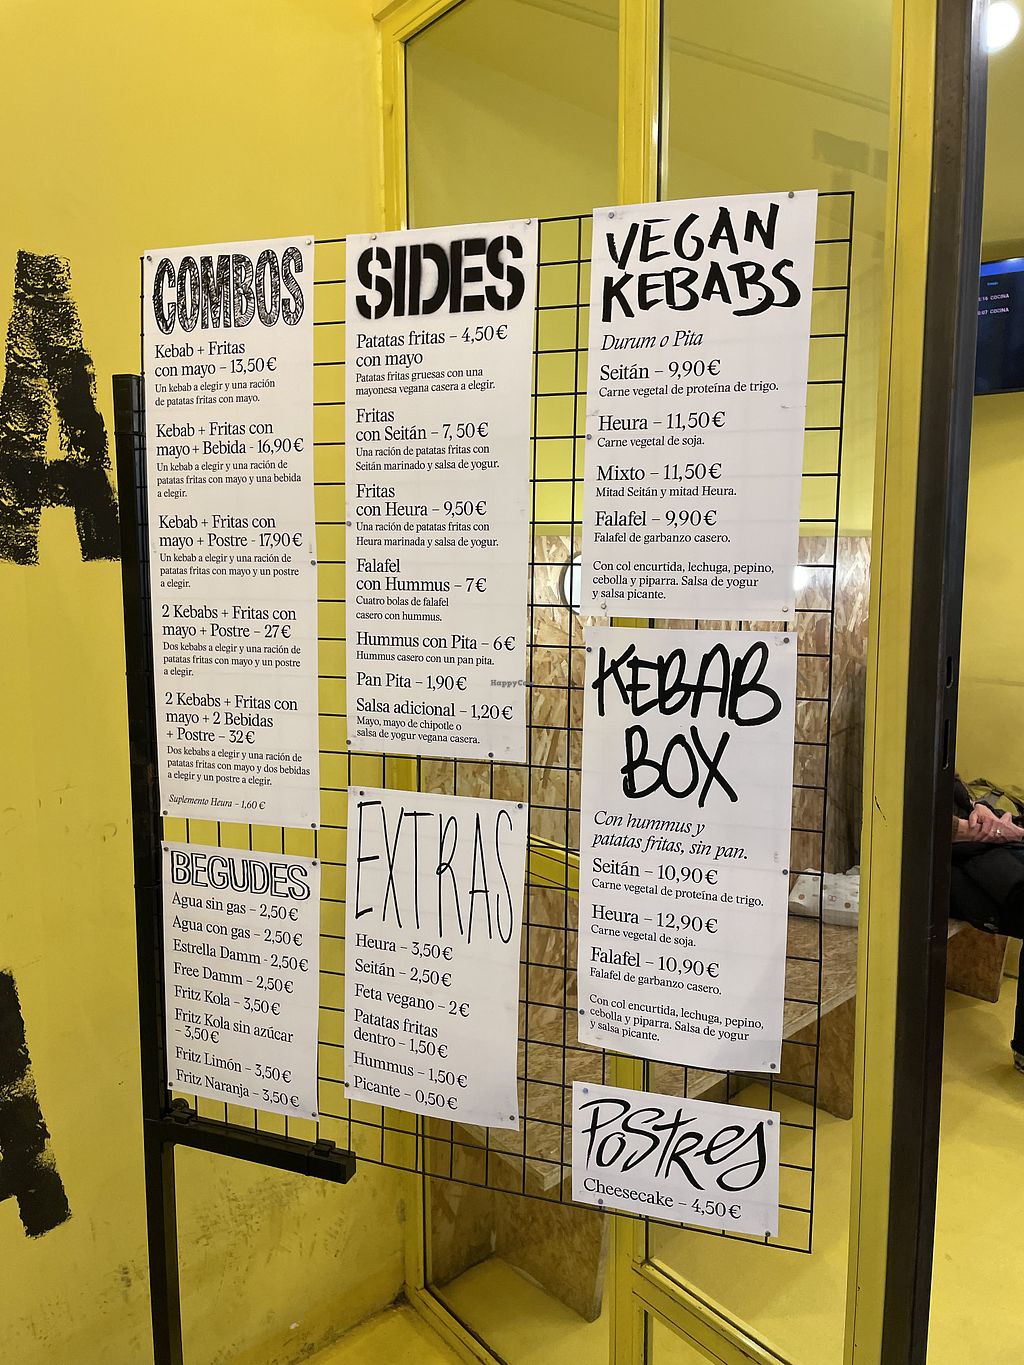 COMBOS
Kebab + Fritas
con mayo – 13,50€
Un kebab a elegir y una ración
de patatas fritas con mayo.
Kebab + Fritas con
mayo + Bebida – 16,90€
Un kebab a elegir y una ración de
patatas fritas con mayo y una bebida
a elegir.
Kebab + Fritas con
mayo + Postre - 17,90€
Un kebab a elegir y una ración de
patatas fritas con mayo y un postre
a elegir.
2 Kebabs + Fritas con
mayo + Postre – 27€
Dos kebabs a elegir y una ración de
patatas fritas con mayo y un postre
a elegir.
2 Kebabs + Fritas con
mayo + 2 Bebidas
+ Postre – 32€
Dos kebabs a elegir y una ración de
patatas fritas con mayo y dos bebidas
a elegir y un postre a elegir.
Suplemento Heura – 1,60 €
BEGUDES
Agua sin gas – 2,50€
Agua con gas – 2,50€
Estrella Damm - 2,50€
Free Damm – 2,50€
Fritz Kola – 3,50€
Fritz Kola sin azúcar
– 3,50€
Fritz Limón – 3,50€
Fritz Naranja – 3,50€
SIDES
Patatas fritas – 4,50€
con mayo
Patatas fritas gruesas con una
mayonesa vegana casera a elegir.
Fritas
con Seitán – 7,50€
Una ración de patatas fritas con
Seitán marinado y salsa de yogur.
Fritas
con Heura – 9,50€
Una ración de patatas fritas con
Heura marinada y salsa de yogur.
Falafel
con Hummus – 7€
Cuatro bolas de falafel
casero con hummus.
Hummus con Pita – 6€
Hummus casero con un pan pita.
Pan Pita – 1,90€
Salsa adicional – 1,20€
Mayo, mayo de chipotle o
salsa de yogur vegana casera.
EXTRAS
Heura – 3,50€
Seitán – 2,50€
Feta vegano – 2€
Patatas fritas
dentro – 1,50€
Hummus – 1,50€
Picante – 0,50€
VEGAN
KEBABS
Durum o Pita
Seitán – 9,90€
Carne vegetal de proteína de trigo.
Heura – 11,50€
Carne vegetal de soja.
Mixto – 11,50€
Mitad Seitán y mitad Heura.
Falafel – 9,90€
Falafel de garbanzo casero.
Con col encurtida, lechuga, pepino,
cebolla y piparra. Salsa de yogur
y salsa picante.
KEBAB
BOX
Con hummus y
patatas fritas, sin pan.
Seitán – 10,90€
Carne vegetal de proteína de trigo.
Heura – 12,90€
Carne vegetal de soja.
Falafel – 10,90€
Falafel de garbanzo casero.
Con col encurtida, lechuga, pepino,
cebolla y piparra. Salsa de yogur
y salsa picante.
POSTRES
Cheesecake – 4,50€
COCINA
COCINA
A